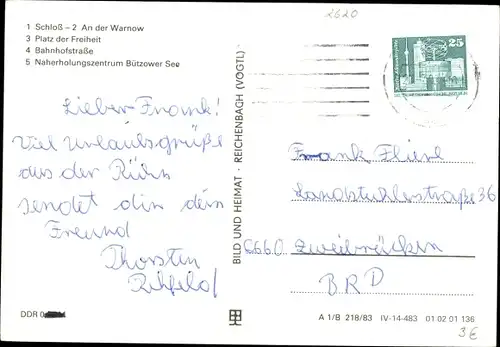 1 Schloß – 2 An der Warnow
3 Platz der Freiheit
4 Bahnhofstraße
5 Naherholungszentrum Bützower See
Lieber Frank!
Viel Urlaubsgrüße
aus der
sendet dir dein
Freund
Thorsten
DDR
BILD UND HEIMAT · REICHENBACH (VOGTL)
2620
25
Frank
Landstuhlerstraße 36
6660 Zweibrücken
BRD
A 1/B 218/83 IV-14-483 01 02 01 136
3€